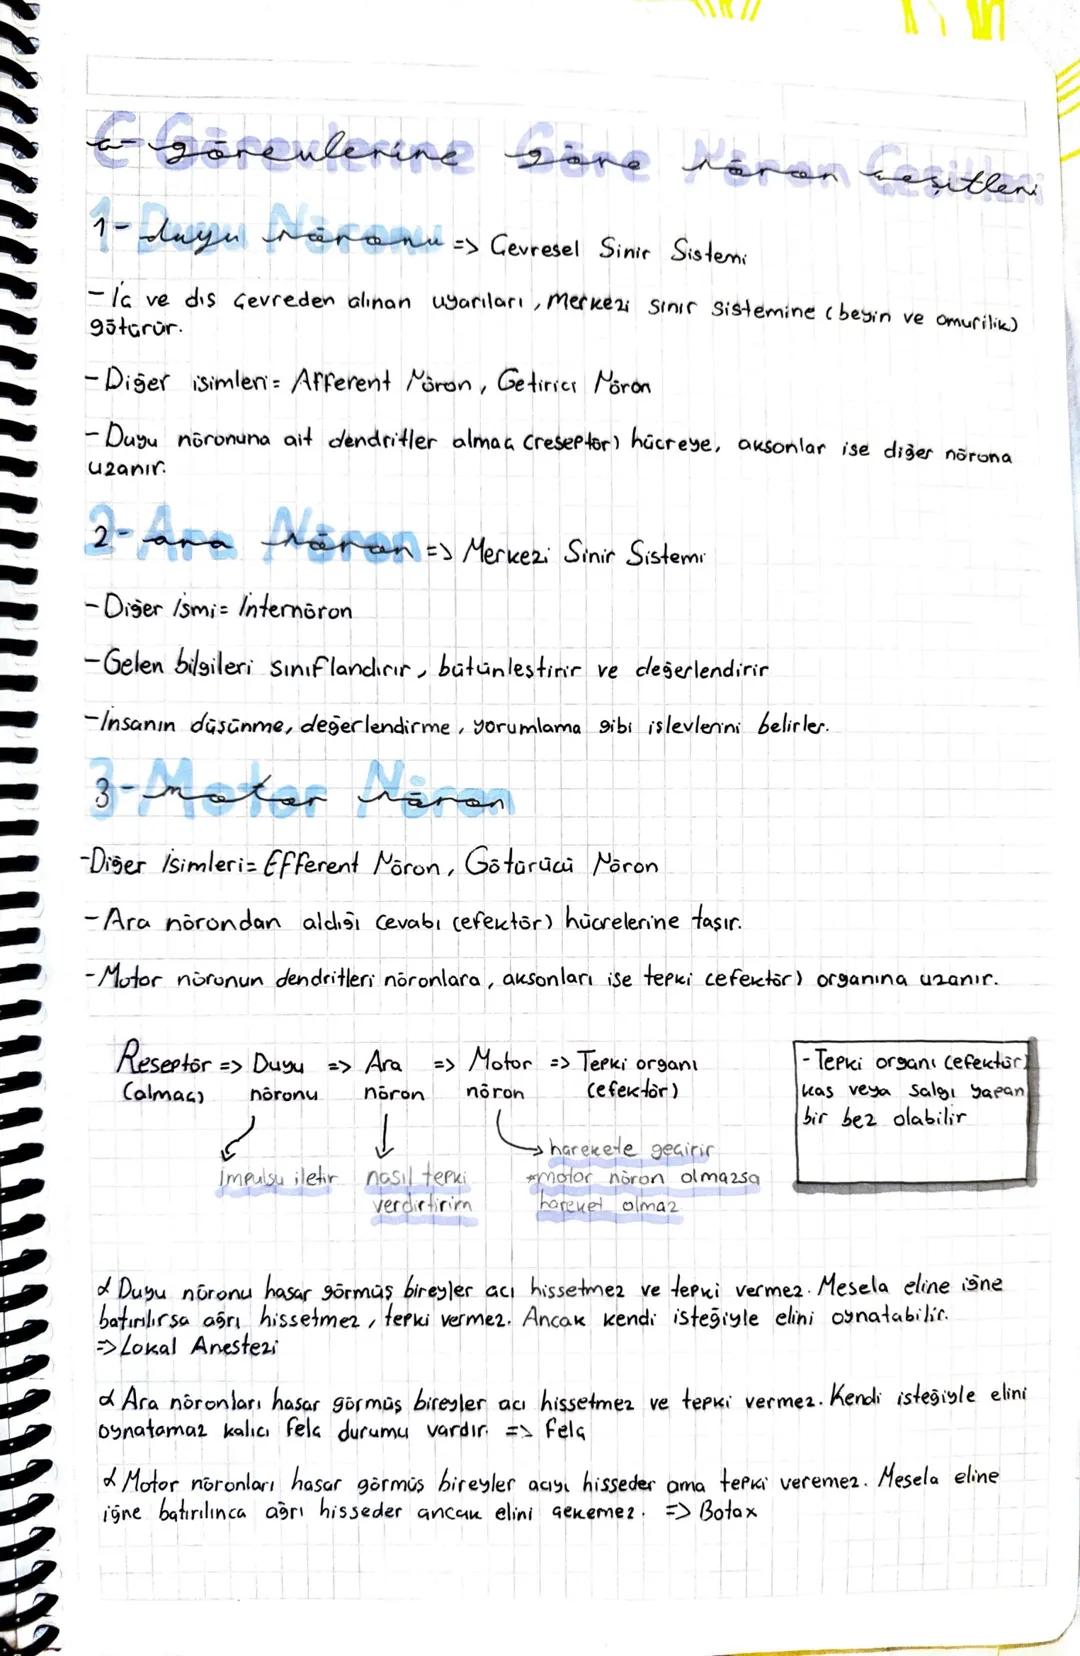 C-Görevlerine Göre Nöron Çeşitleri
1-Duyu Nöronu => Çevresel Sinir Sistemi
-İç ve dış çevreden alınan uyarıları, Merkezi sinir sistemine (beyin ve omurilik)
götürür.
-Diğer isimleri= Afferent Nöron, Getirici Nöron
-Duyu nöronuna ait dendritler almaç (reseptör) hücreye, aksonlar ise diğer nörona
uzanır.
2-Ara Nöron => Merkezi Sinir Sistemi
-Diğer İsmi= İnternöron
-Gelen bilgileri sınıflandırır, bütünleştirir ve değerlendirir
-İnsanın düşünme, değerlendirme, yorumlama gibi işlevlerini belirler.
3-Motor Nöron
-Diğer İsimleri= Efferent Nöron, Götürücü Nöron
-Ara nörondan aldığı cevabı (efektör) hücrelerine taşır.
-Motor nöronun dendritleri nöronlara, aksonları ise tepki (efektör) organına uzanır.
Reseptör => Duyu => Ara => Motor => Tepki organı
(almaç) nöronu nöron nöron (efektör)
impulsu iletir
nasıl tepki
verdirtirim
harekete geçirir
*motor nöron olmazsa
hareket olmaz
-Tepki organı (efektör)
kas veya salgı yapan
bir bez olabilir
α Duyu nöronu hasar görmüş bireyler acı hissetmez ve tepki vermez. Mesela eline iğne
batırılırsa ağrı hissetmez, tepki vermez. Ancak kendi isteğiyle elini oynatabilir.
=> Lokal Anestezi
α Ara nöronları hasar görmüş bireyler acı hissetmez ve tepki vermez. Kendi isteğiyle elini
oynatamaz kalıcı felç durumu vardır. => Felç
α Motor nöronları hasar görmüş bireyler acıyı hisseder ama tepki veremez. Mesela eline
iğne batırılınca ağrı hisseder ancak elini çekemez. => Botox